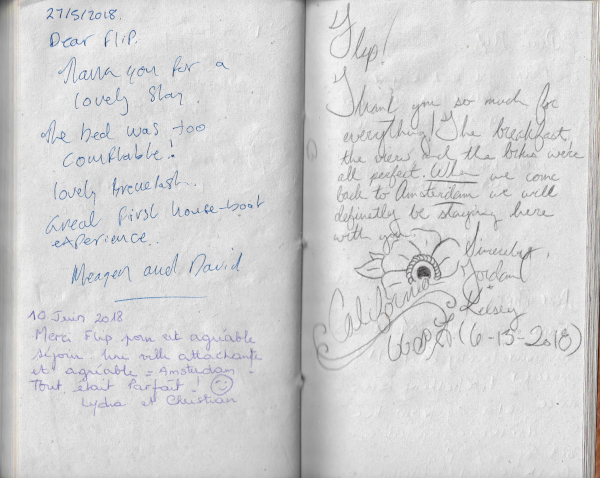 27/5/2018.
Dear Flip.
Thank you for a
lovely stay.
The bed was too
comftable!
lovely Breakfast..
Great first house-boat
experience..
Meagen and David
10 Juin 2018
Merci Flip pour cet agréable
séjour. Une ville attachante
et agréable = Amsterdam -
Tout était Parfait!
Lydia et Christian
Flip!
Thank you so much for
everything! The breakfast,
the view and the bikes were
all perfect. When we come
back to Amsterdam we will
definitly be staying here
with you.
Sincerely,
Jordan
+
Kelsey
California
(6-15-2018)